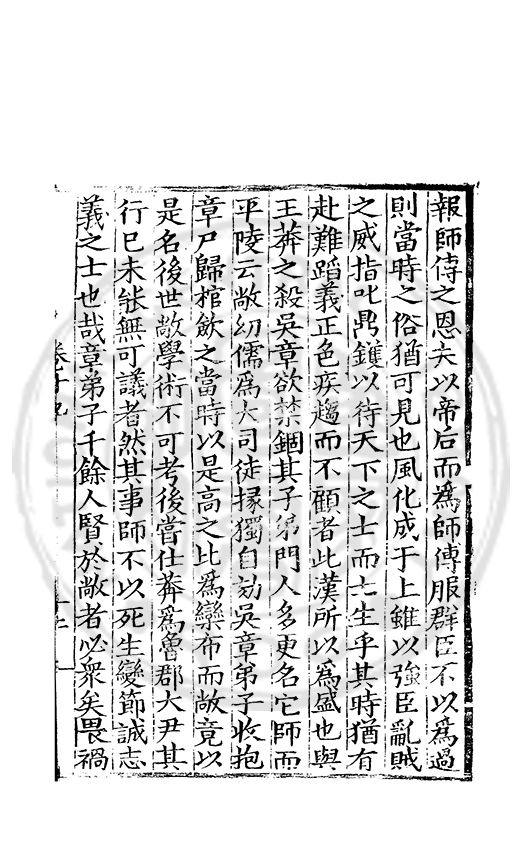 報師傅之恩夫以帝后而為師傅服群臣不以為過
則當時之俗猶可見也風化成于上雖以強臣亂賊
之威指叱鼎鑊以待天下之士而士生乎其時猶有
赴難蹈義正色疾趨而不顧者此漢所以為盛也與
王莽之殺吳章欲禁錮其子弟門人多更名它師而
平陵云敞幼儒為大司徒掾獨自劾吳章弟子收抱
章尸歸棺斂之當時以是高之比為欒布而敞竟以
是名後世敞學術不可考後嘗仕莽為魯郡大尹其
行已未能無可議者然其事師不以死生變節誠志
義之士也哉章弟子千餘人賢於敞者必衆矣畏禍